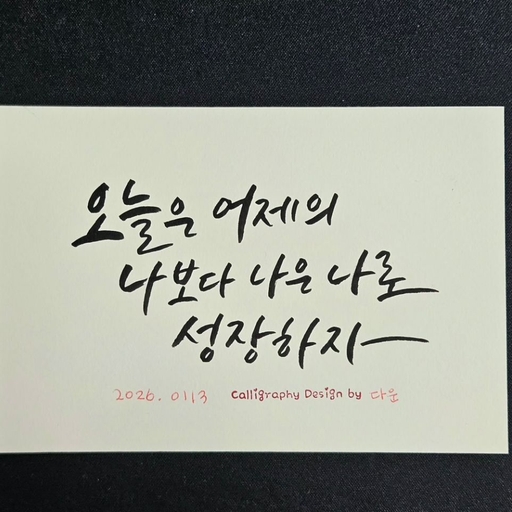 오늘은 어제의
나보다 나은 나로
성장하자
2026. 0113 Calligraphy Design by 다운